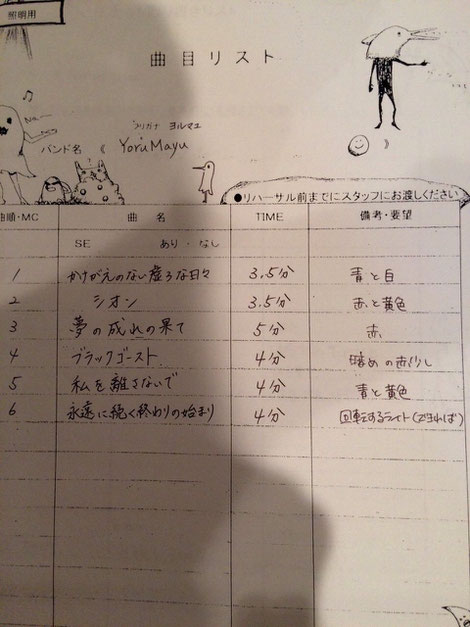 照明用
曲目リスト
フリガナ ヨルマユ
バンド名 《 YoruMayu 》
●リハーサル前までにスタッフにお渡しください
曲順・MC 曲 名 TIME 備考・要望
SE あり・なし
1 かけがえのない虚ろな日々 3.5分 青と白
2 シオン 3.5分 赤と黄色
3 夢の成れの果て 5分 赤
4 ブラックゴースト 4分 暗めの赤
5 私を離さないで 4分 青と黄色
6 永遠に続く終わりの始まり 4分 回転するライト(できれば)